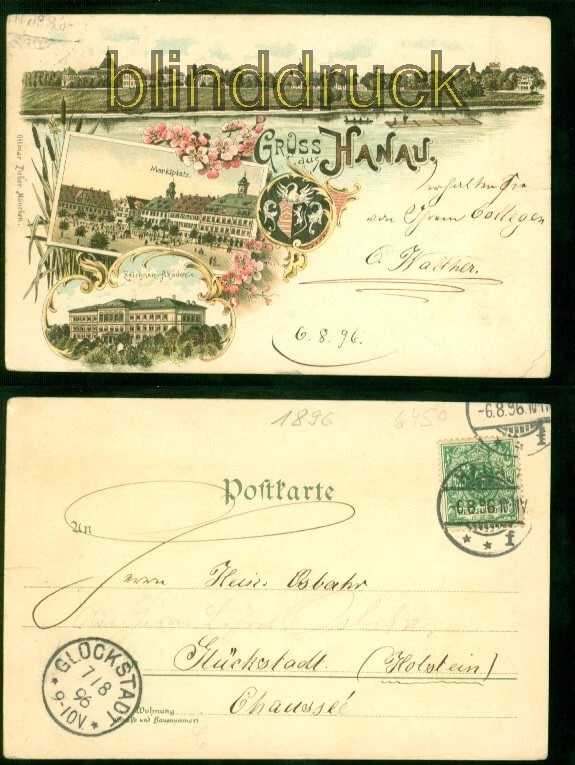 blinddruck
GRUSS
aus
HANAU.
Marktplatz.
Ottmar Zieher, München.
erhalten Sie
von Ihrem Collegen
C. Walther.
Zeichnen-Akademie.
6.8.96.
1896
6450
-6.8.96.
Postkarte
An
Herrn Heinr. Osbahr
Glückstadt. (Holstein)
Chaussée
GLÜCKSTADT
7/8
96
9-10V.
Wohnung
(Straße und Hausnummer)